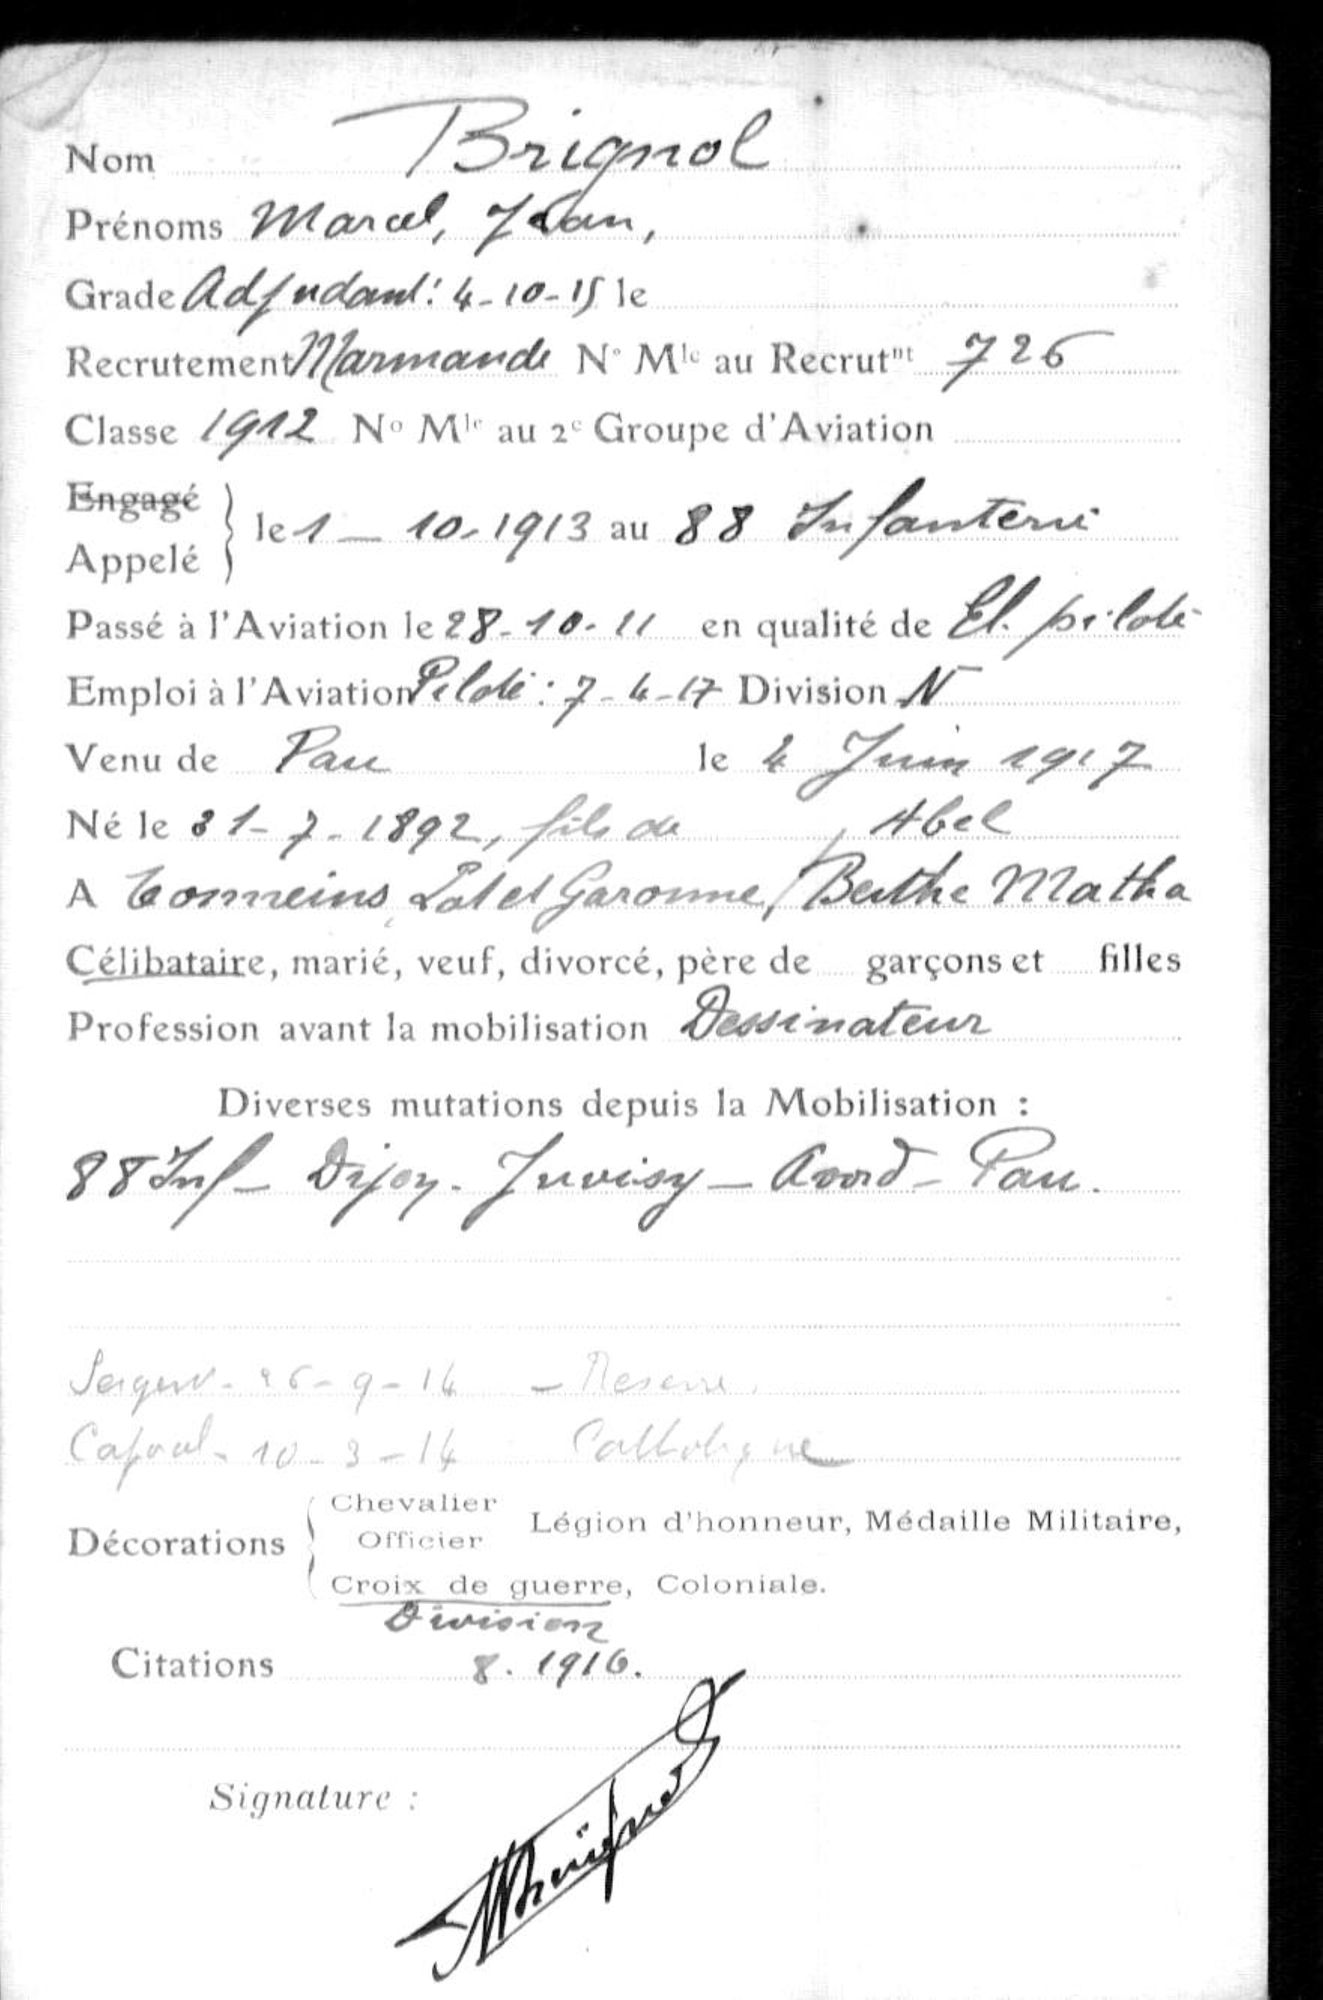 Nom Brignol
Prénoms Marcel, Jean,
Grade Adjudant : 4-10-15 le
Recrutement Marmande N° Mle au Recrutnt 726
Classe 1912 No Mle au 2e Groupe d'Aviation
Engagé
Appelé } le 1 — 10-1913 au 88 Infanterie
Passé à l'Aviation le 28-10-11 en qualité de El. pilote
Emploi à l'Aviation Pilote : 7-4-17 Division N
Venu de Pau le 4 Juin 1917
Né le 31-7-1892, fils de Abel
A Tonneins, Lot et Garonne, Berthe Matha
Célibataire, marié, veuf, divorcé, père de garçons et filles
Profession avant la mobilisation Dessinateur
Diverses mutations depuis la Mobilisation :
88 Inf — Dijon - Juvisy — Avord — Pau.
Sergent - 26-9-14 — Réserve.
Caporal - 10-3-14 Catholique
Décorations { Chevalier
Officier Légion d'honneur, Médaille Militaire,
Croix de guerre, Coloniale.
Division
Citations 8. 1916.
Signature :
MBrignol